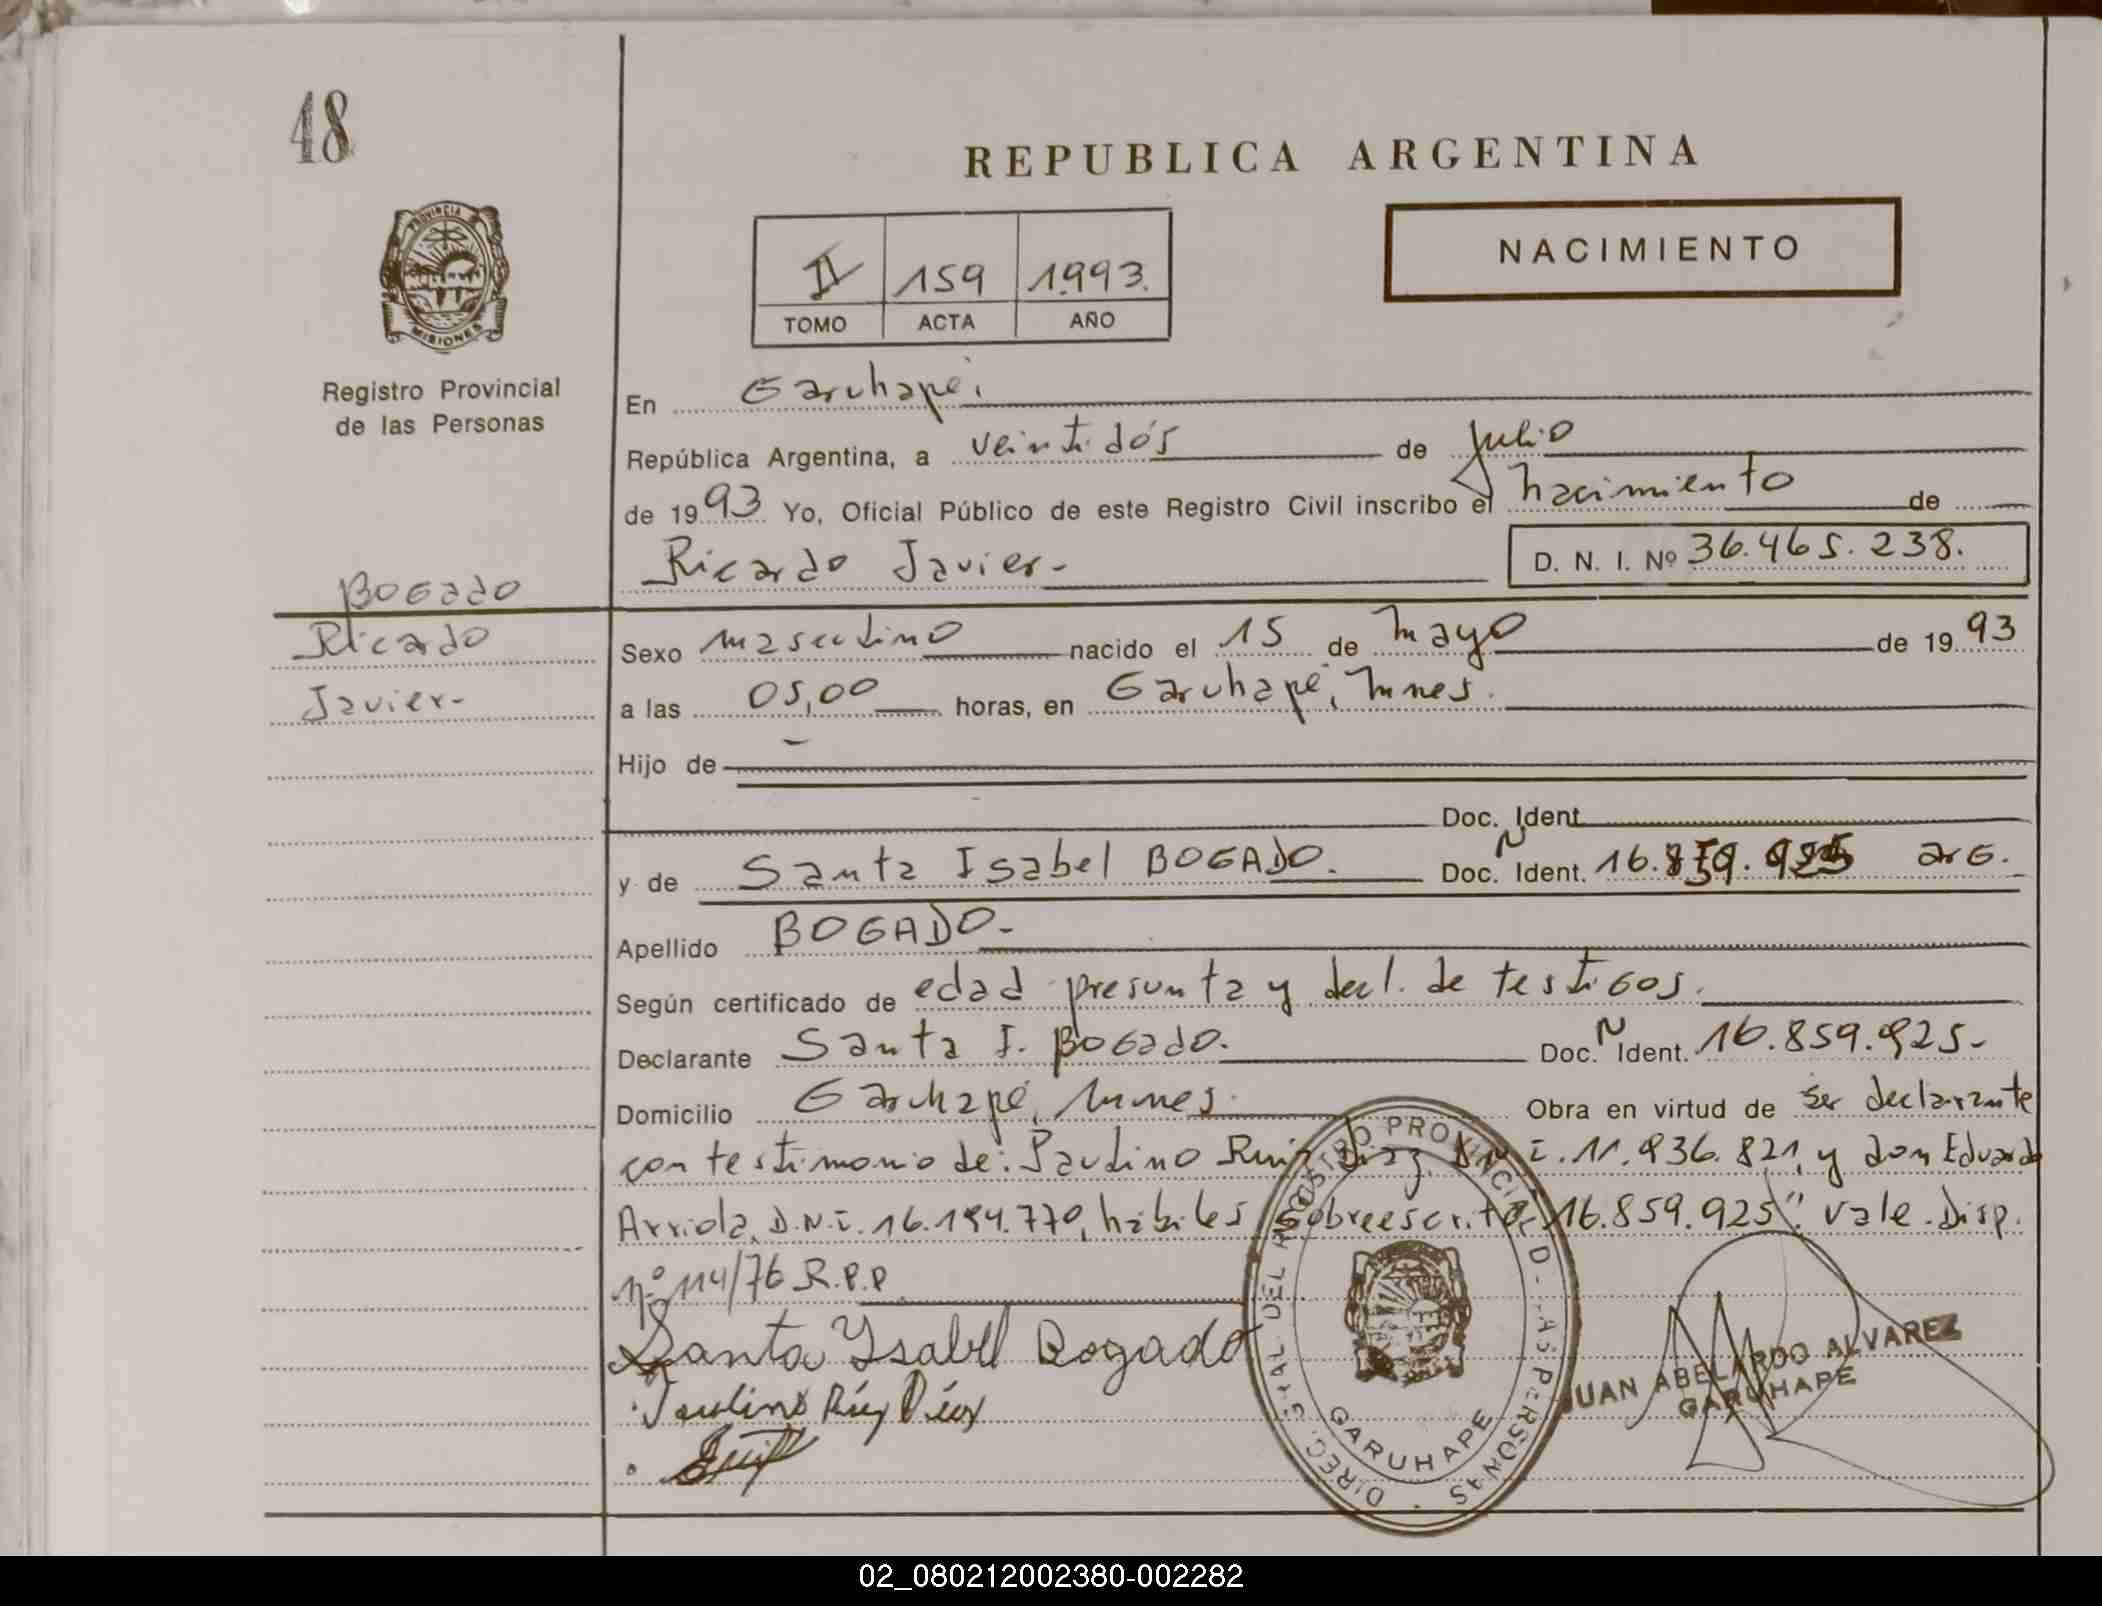 48
REPUBLICA ARGENTINA
NACIMIENTO
PROVINCIA
MISIONES
II 159 1993.
TOMO ACTA AÑO
Registro Provincial
de las Personas
En Garuhapé;
República Argentina, a veintidós de Julio
de 1993 Yo, Oficial Público de este Registro Civil inscribo el nacimiento de
Ricardo Javier- D. N. I. Nº 36.465.238.
BOGADO
Ricardo
Javier-
Sexo masculino nacido el 15 de mayo de 1993
a las 05,00 horas, en Garuhapé, Mnes.
Hijo de
Doc. Ident.
y de Santa Isabel BOGADO. Doc. N Ident. 16.859.925 arg.
Apellido BOGADO-
Según certificado de edad presunta y decl. de testigos.
Declarante Santa I. Bogado. Doc. N Ident. 16.859.925-
Domicilio Garuhapé, Mnes. Obra en virtud de ser declarante
con testimonio de: Paulino Ruiz Diaz, D N I. 11.936.821, y don Eduardo
Arriola, D.N.I. 16.194.770, hábiles, Sobreescrito: 16.859.925". Vale. Disp.
nº 114/76 R.P.P.
Santa Ysabel Bogado
Paulino Ruiz Diaz
DIREC. GRAL DEL REGISTRO PROVINCIAL D- LAS PERSONAS
GARUHAPE
JUAN ABELARDO ALVAREZ
GARUHAPE
02_080212002380-002282